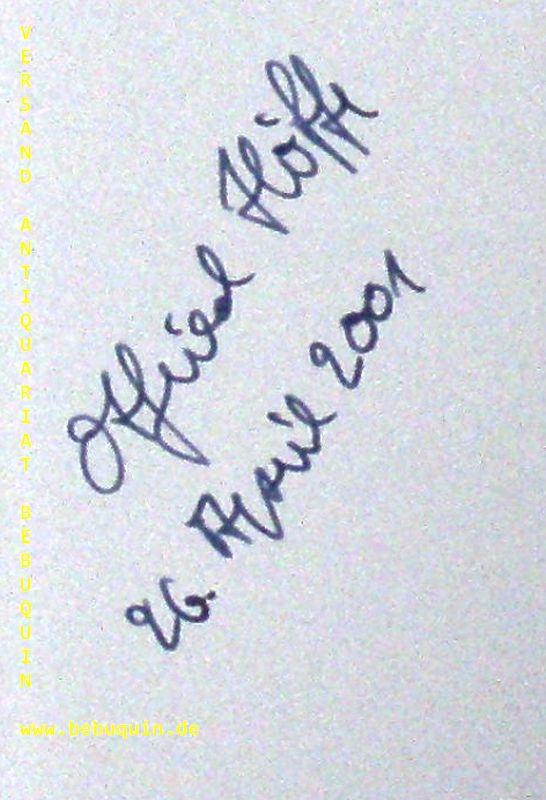 Otfried Höffe
26. April 2001
VERSAND ANTIQUARIAT BEBUQUIN
www.bebuquin.de